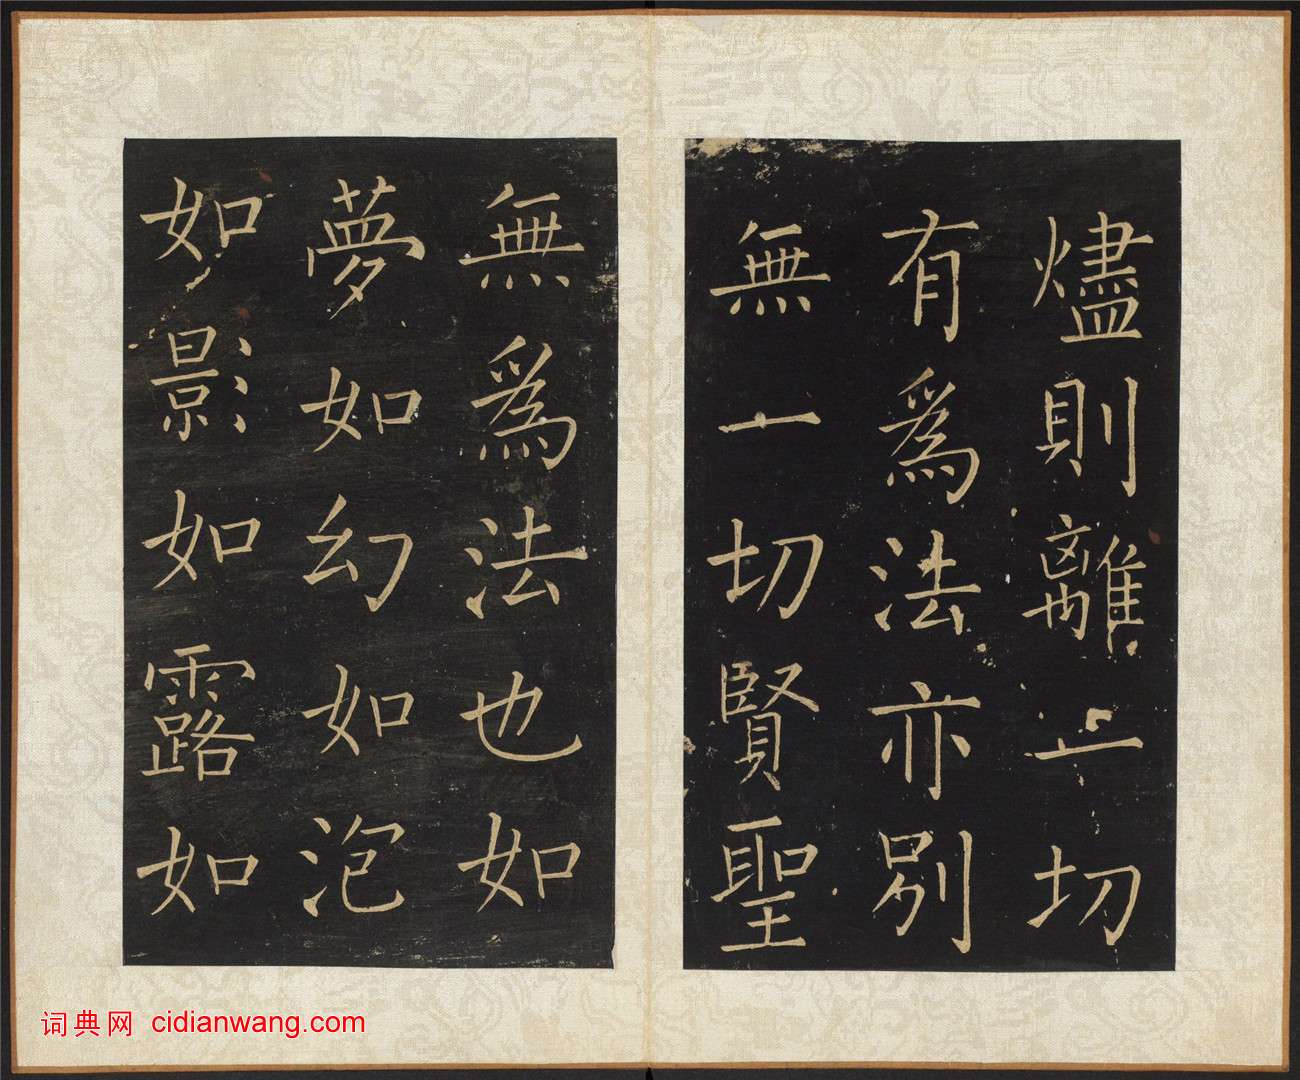 燼則離一切
有爲法亦別
無一切賢聖
無爲法也如
夢如幻如泡
如影如露如
词典网 cidianwang.com